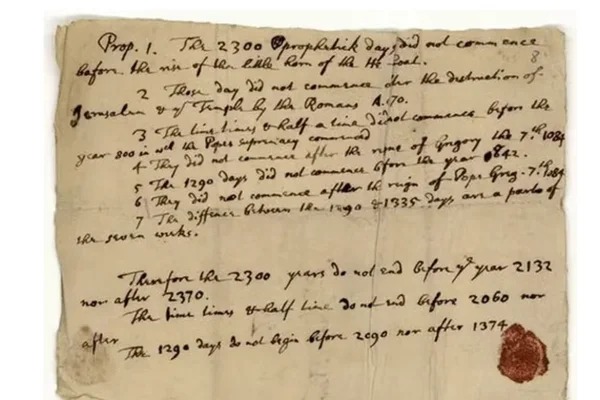 Prop. 1. The 2300 prophetick days did not commence
before the rise of the little horn of the He Goat. 8
2 Those day did not commence after the destruction of
Jerusalem & ye Temple by the Romans A.70.
3 The time times & half a time did not commence before the
year 800 in wch the Popes supremacy commenced
4 They did not commence after the reigne of Gregory the 7th. 1084
5 The 1290 days did not commence bfore the year 842.
6 They did not commence after the reign of Pope Greg. 7th. 1084
7 The diffence between the 1290 & 1335 days are a parts of
the seven weeks.
Therefore the 2300 years do not end before ye year 2132
nor after 2370.
The time times & half time do not end before 2060 nor
after
The 1290 days do not begin before 2090 nor after 1374